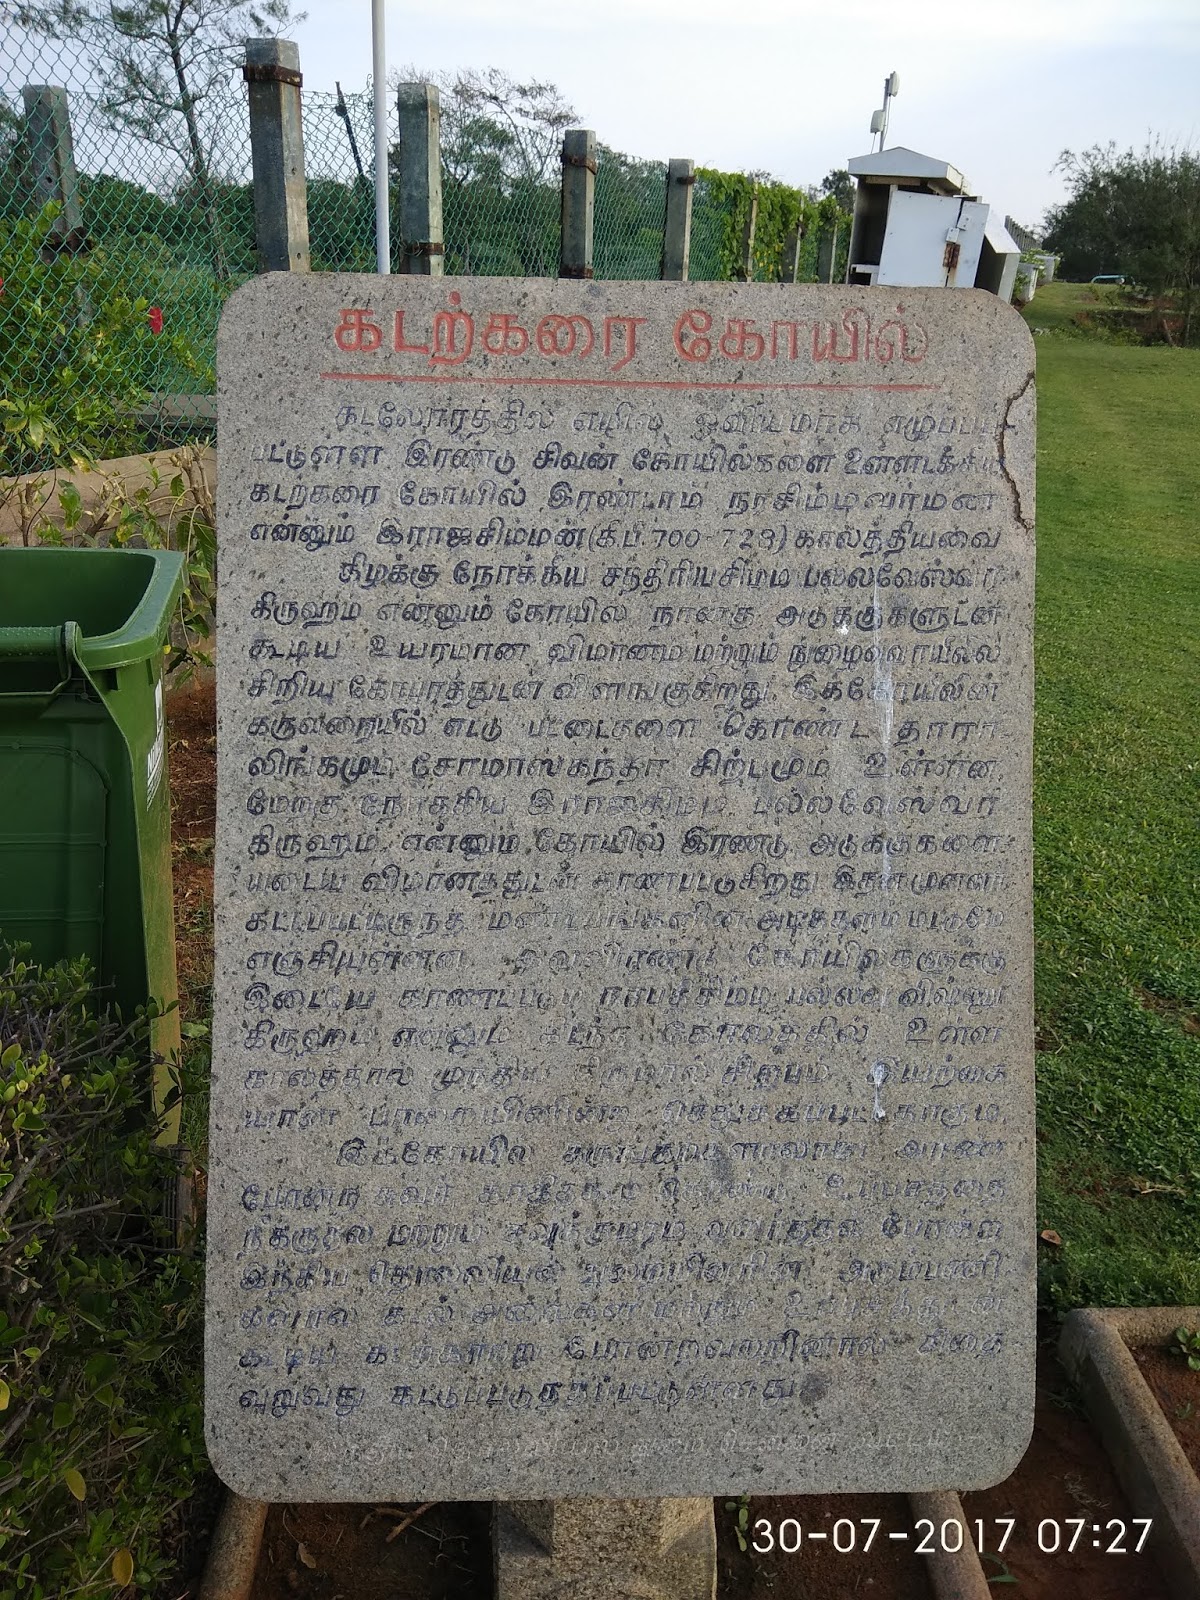 கடற்கரை கோயில்
கடலோரத்தில் எழில் ஓவியமாக எழுப்பப்
பட்டுள்ள இரண்டு சிவன் கோயில்களை உள்ளடக்கிய
கடற்கரை கோயில் இரண்டாம் நரசிம்மவர்மன்
என்னும் இராஜசிம்மன் (கி.பி. 700-728) காலத்தியவை
கிழக்கு நோக்கிய சந்திரியசிம்ம பல்லவேஸ்வர
கிருஹம் என்னும் கோயில் நான்கு அடுக்குகளுடன்
கூடிய உயரமான விமானம் மற்றும் நுழைவுவாயிலில்
சிறிய கோபுரத்துடன் விளங்குகிறது. இக்கோயிலின்
கருவறையில் எட்டு பட்டைகளை கொண்ட தாரா
லிங்கமும் சோமாஸ்கந்தர் சிற்பமும் உள்ளன.
மேற்கு நோக்கிய இராஜசிம்ம பல்லவேஸ்வர
கிருஹம் என்னும் கோயில் இரண்டு அடுக்குகளை
யுடைய விமானத்துடன் காணப்படுகிறது. இதன் முன்னர்
கட்டப்பட்டிருந்த மண்டபங்களின் அடித்தளம் மட்டுமே
எஞ்சியுள்ளன. இவ்விரண்டு கோயில்களுக்கு
இடையே காணப்படும் நரபதிசிம்ம பல்லவ விஷ்ணு
கிருஹம் என்னும் கிடந்த கோலத்தில் உள்ள
காலத்தால் முந்திய திருமால் சிற்பம் இயற்கை
யான பாறையினின்று செதுக்கப்பட்டதாகும்.
இக்கோயில்
போன்ற சுவர் காகிதக்கூழ் கொண்டு உப்புசத்தை
நீக்குதல் மற்றும் சவுக்குமரம் வளர்த்தல் போன்ற
இந்திய தொல்லியல் துறையினரின் அரும்பணி
களால் கடல் அலைகள் மற்றும் உப்புசத்துடன்
கூடிய கடற்காற்று போன்றவற்றினால் சிதை
வுறுவது கட்டுப்படுத்தப்பட்டுள்ளது.
30-07-2017 07:27